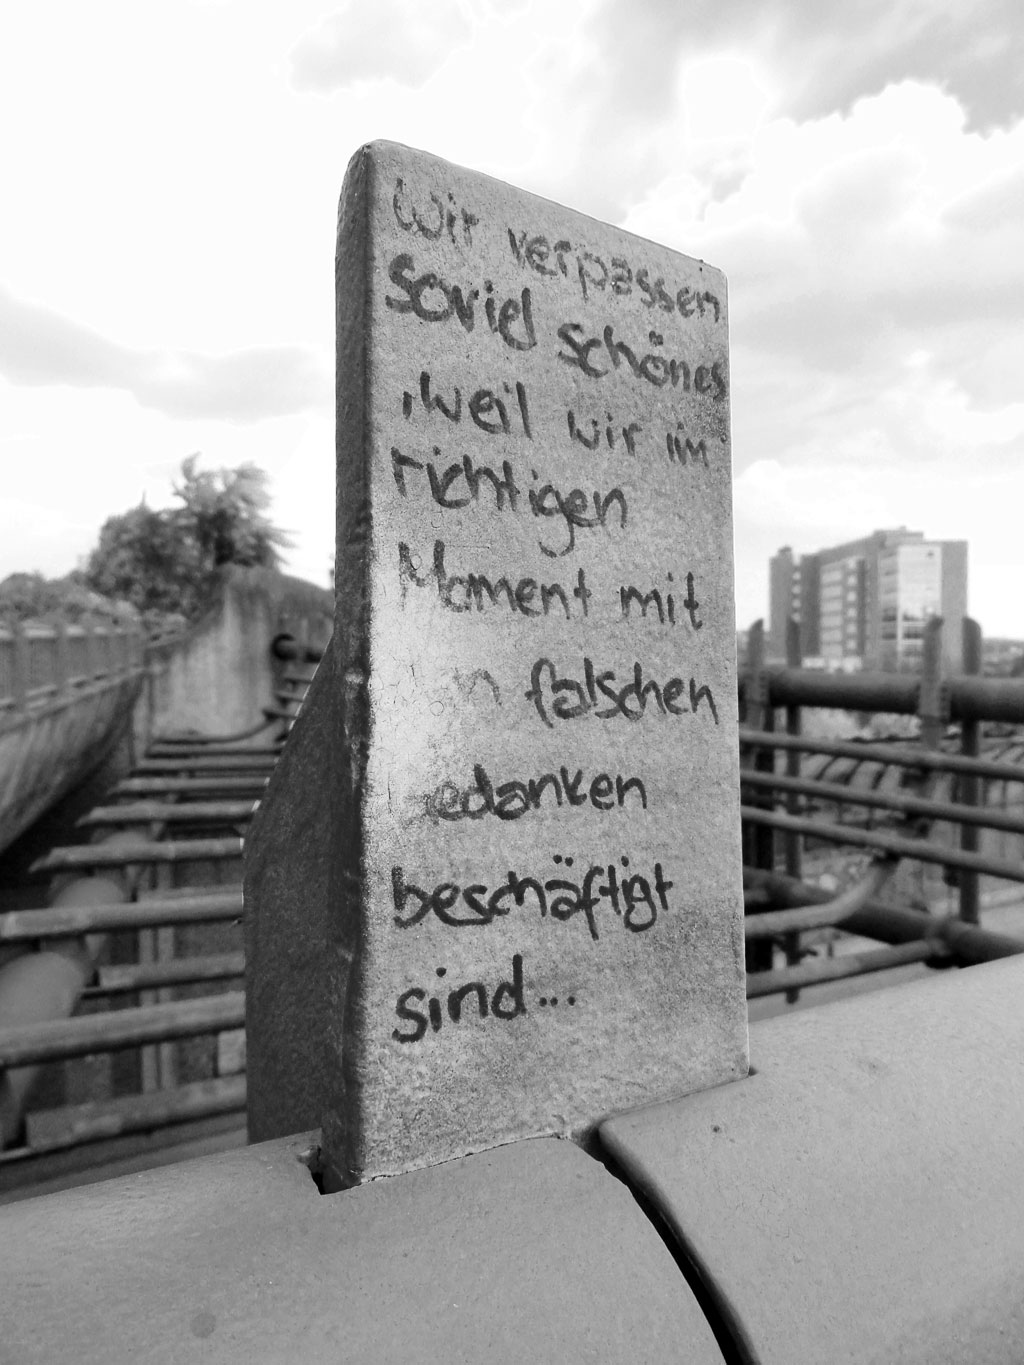 Wir verpassen
soviel schönes
,weil wir im
richtigen
Moment mit
falschen
edanken
beschäftigt
sind...